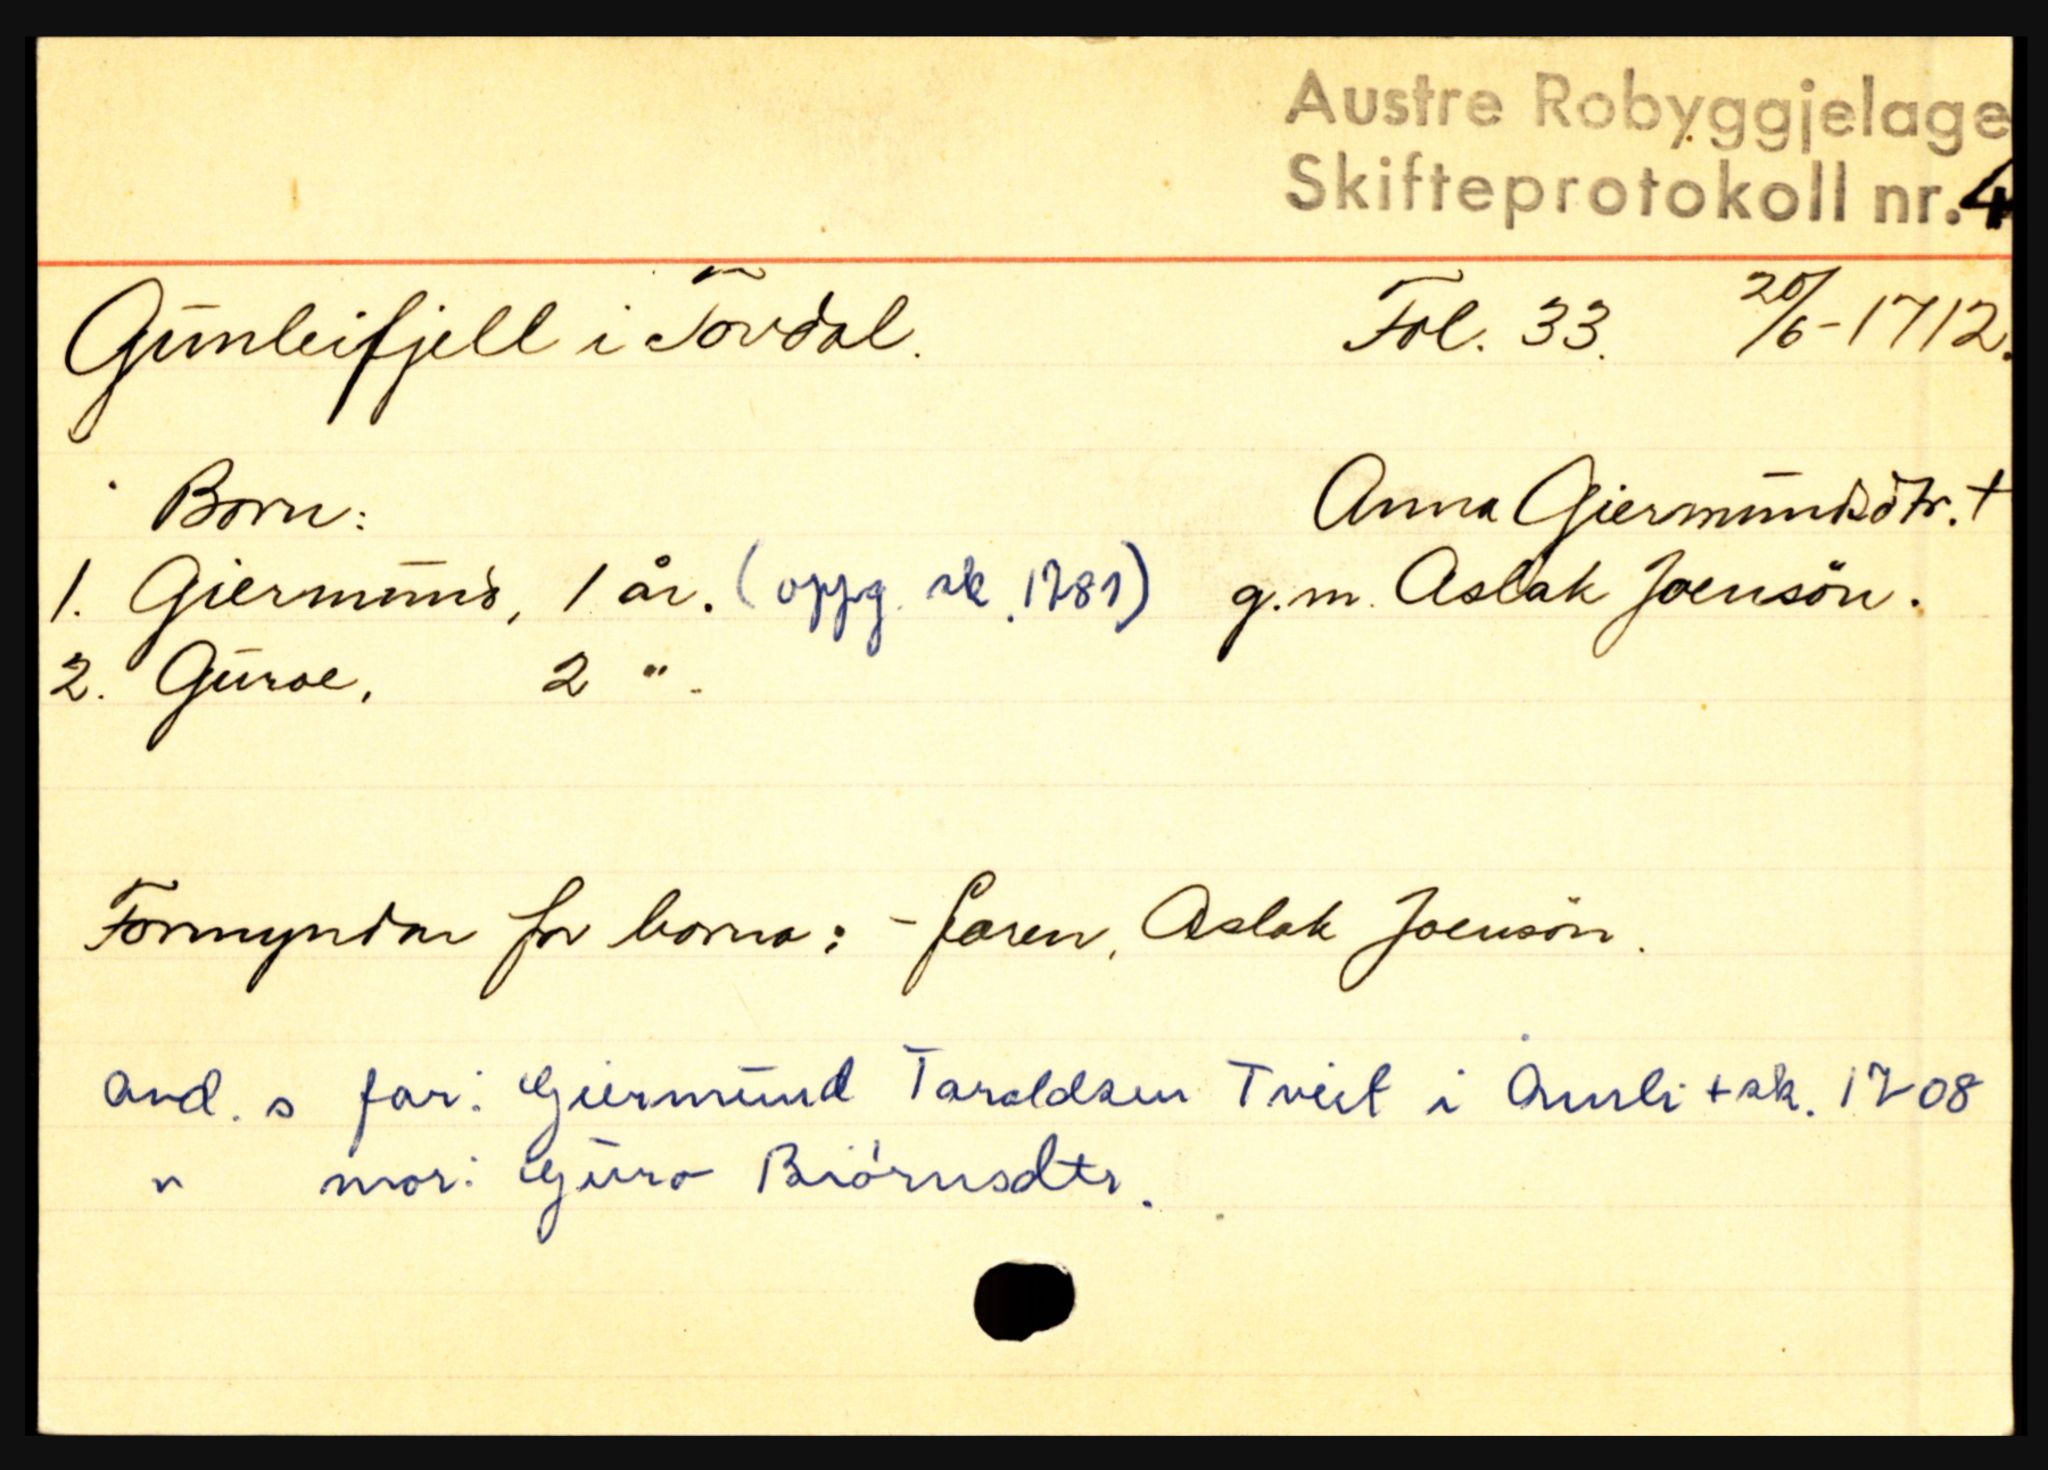 Austre Robyggjelage
Skifteprotokoll nr. 4
Gunleifjell i Tovdal. Fol. 33. 20/6-1712.
Born: Anna Giermundsdtr. +
1. Giermund, 1 år. (oppg. sk. 1781) g.m. Aslak Joensön.
2. Guroe, 2 " .
Formyndar for borna: - faren, Aslak Joensön.
avd. s far: Giermund Taraldsen Tveit i Åmli + sk. 1708
" mor: Guro Biörnsdtr.